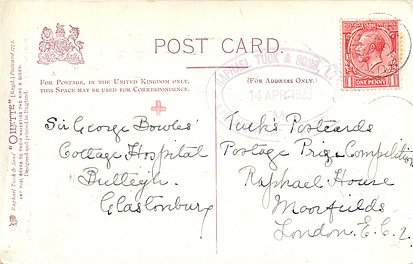 POST CARD.
FOR POSTAGE, IN THE UNITED KINGDOM ONLY,
THIS SPACE MAY BE USED FOR CORRESPONDENCE.
(FOR ADDRESS ONLY.)
RAPHAEL TUCK & SONS, L
14 APR 192
POSTAGE
ONE PENNY
Sir George Bowles'
Cottage Hospital
Butleigh
Glastonbury
Tuck's Postcards
Postage Prize Competition
Raphael House
Moorfields
London. E.C. 2.
Raphael Tuck & Sons' "OILETTE" [Regd.] Postcard 1772.
Designed and printed in England.